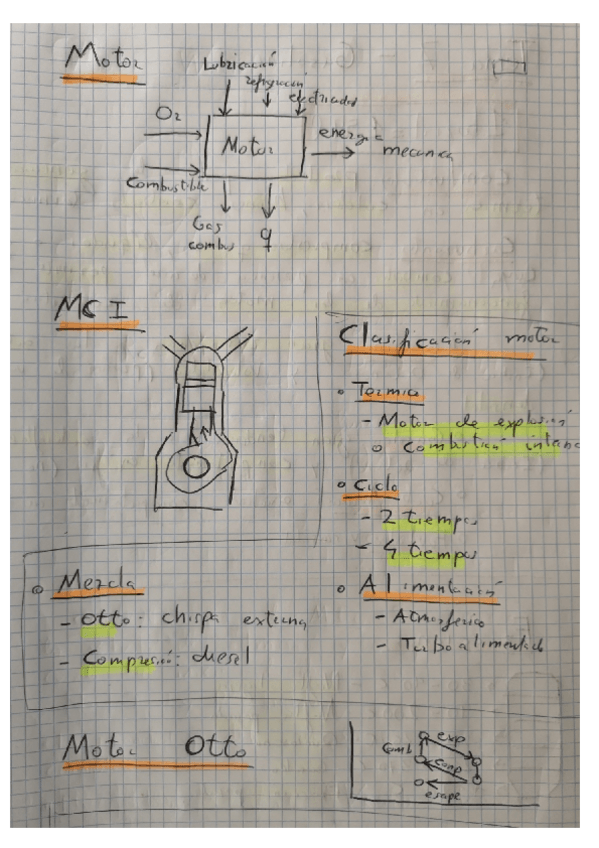 Motor
Lubricación
refrigeración
electricidad
O2
Motor
energía
mecanica
Combustible
Gas
combus
q
MCI
Clasificación motor
Termico
- Motor de explosión
o Combustión interna
Ciclo
- 2 tiempos
- 4 tiempos
Mezcla
- Otto: chispa externa
- Compresión: diesel
Alimentación
- Atmosferico
- Turboalimentado
Motor Otto
Comb
exp
comp
escape